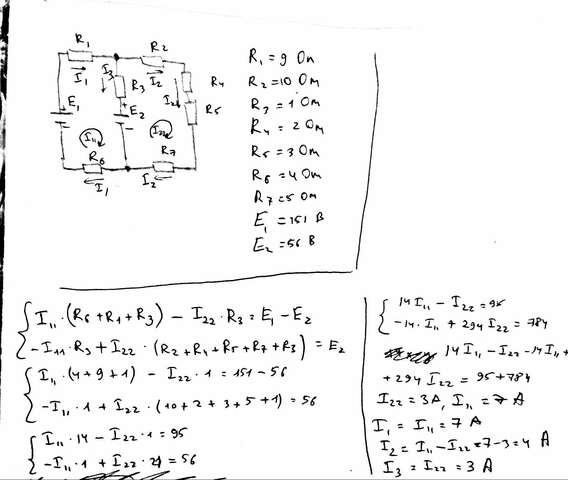 R₁
R₂
I₁
I₃
R₃
I₂
R₄
I₂₂
R₅
E₁
E₂
I₁₁
I₂₂
R₆
R₇
I₁
I₂
R₁ = 9 Om
R₂ = 10 Om
R₃ = 1 Om
R₄ = 2 Om
R₅ = 3 Om
R₆ = 4 Om
R₇ = 5 Om
E₁ = 151 В
E₂ = 56 В
I₁₁·(R₆+R₁+R₃) - I₂₂·R₃ = E₁ - E₂
-I₁₁·R₃ + I₂₂·(R₂+R₄+R₅+R₇+R₃) = E₂
I₁₁·(4+9+1) - I₂₂·1 = 151-56
-I₁₁·1 + I₂₂·(10+2+3+5+1) = 56
I₁₁·14 - I₂₂·1 = 95
-I₁₁·1 + I₂₂·21 = 56
14I₁₁ - I₂₂ = 95
-14·I₁₁ + 294I₂₂ = 784
14I₁₁ - I₂₂ - 14I₁₁ +
+294I₂₂ = 95 + 784
I₂₂ = 3A, I₁₁ = 7 A
I₁ = I₁₁ = 7 A
I₂ = I₁₁ - I₂₂ = 7-3 = 4 A
I₃ = I₂₂ = 3 A